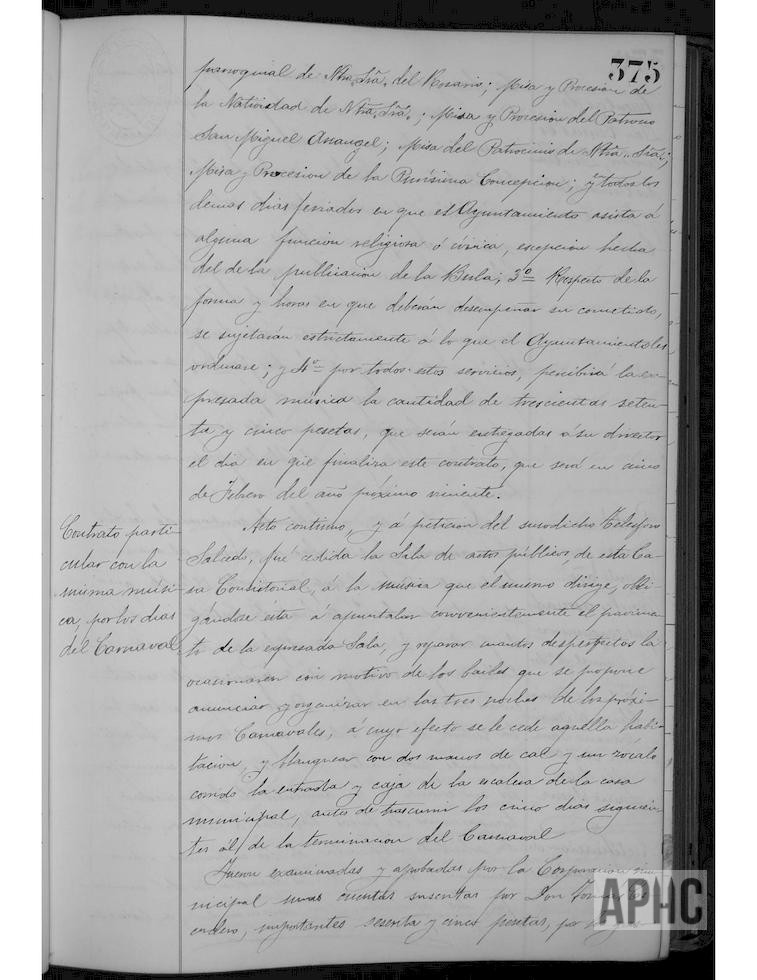 375
parroquial de Ntra. Sra. del Rosario; Misa y Procesion de
la Natividad de Ntra. Sra.; Misa y Procesion del Patrono
San Miguel Arcangel; Misa del Patrocinio de Ntra. Sra.;
Misa y Procesion de la Purísima Concepcion; y todos los
demas dias feriados en que el Ayuntamiento asista á
alguna funcion religiosa ó cívica, escepcion hecha
del de la publicacion de la Bula; 3º Respecto de la
forma y horas en que deberán desempeñar su cometido,
se sujetarán estrictamente á lo que el Ayuntamiento les
ordenare; y 4º por todos estos servicios, percibirá la es-
presada música la cantidad de trescientas seten-
ta y cinco pesetas, que serán entregadas á su director
el dia en que finaliza este contrato, que será en cinco
de Febrero del año próximo viniente.
Contrato parti-
cular con la
misma músi-
ca, por los dias
del Carnaval
Acto continuo, y á peticion del susodicho Telesforo
Salcedo, fué cedida la Sala de actos públicos, de esta Ca-
sa Consistorial, á la música que el mismo dirige, obli-
gándose esta á apuntalar convenientemente el pavimen-
to de la espresada Sala, y reparar cuantos desperfectos la
ocasionaren con motivo de los bailes que se propone
anunciar y organizar en las tres noches de los próxi-
mos Carnavales, á cuyo efecto se le cede aquella habi-
tacion, y blanquear con dos manos de cal y un zocalo
corrido la entrada y caja de la escalera de la casa
municipal, antes de trascurrir los cinco dias siguien-
tes al de la terminacion del Carnaval
Fueron examinadas y aprobadas por la Corporacion mu-
nicipal unas cuentas suscritas por Don
importantes sesenta y cinco pesetas, por
APHC